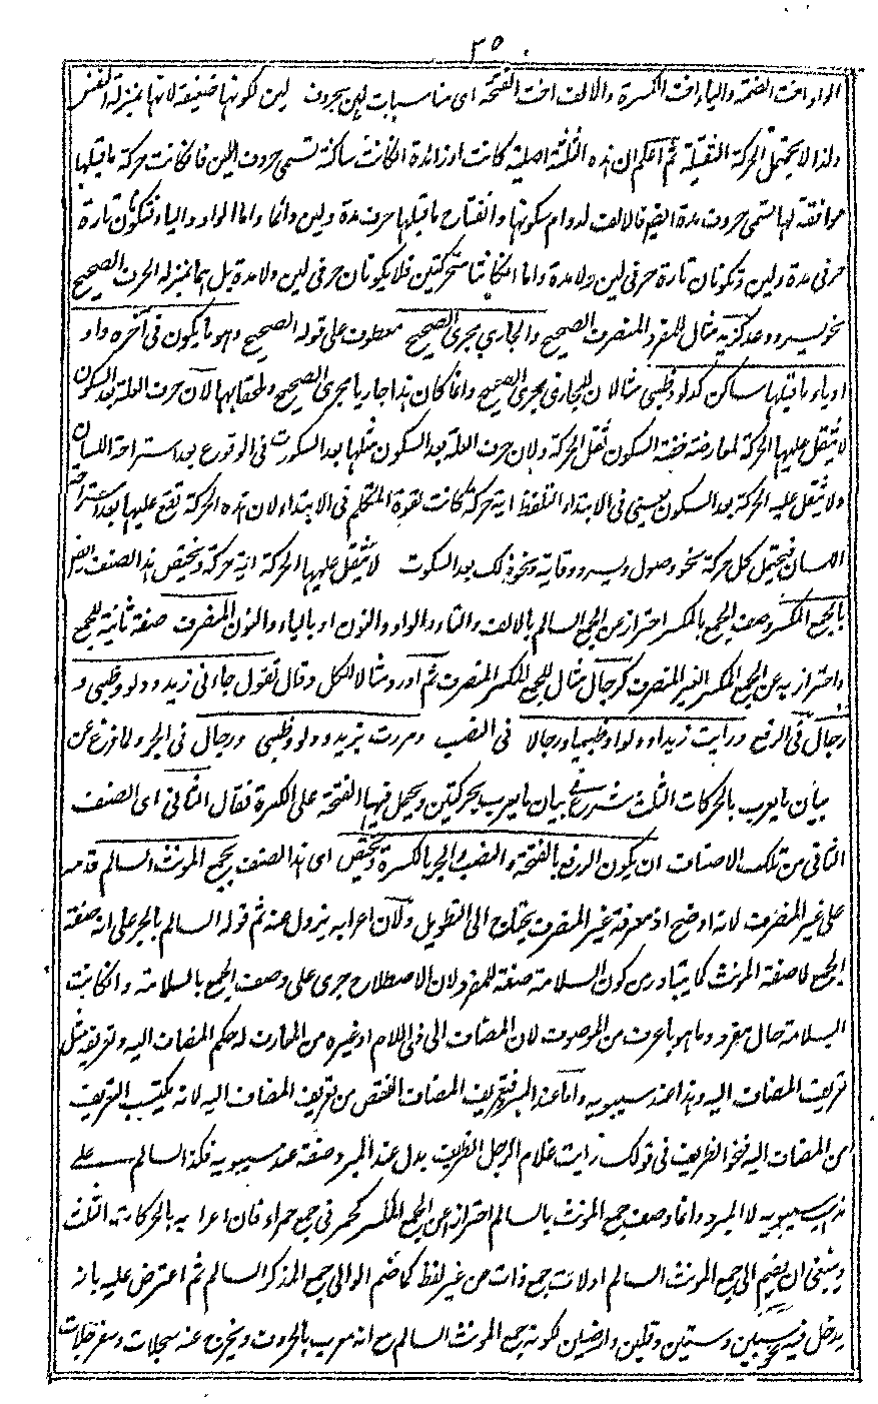 ٣٥
الواو اخت الضمة والياء اخت الكسرة والالف اخت الفتحة اى مناسبات لهن بحروف لين لكونها ضعيفة لانها بمنزلة النفس
ولذا لا يحتمل الحركة الثقيلة ثم اعلم ان هذه الثلثة اصلية كانت او زائدة ان كانت ساكنة تسمى حروف اللين فان كانت حركة ما قبلها
موافقة لها تسمى حروف مدة ايضا فالالف لدوام سكونها وانفتاح ما قبلها حرف مدة ولين دائما واما الواو والياء فتكونان تارة
حرفى مدة ولين وتكونان تارة حرفى لين ولا مدة واما ان كانتا متحركتين فلا يكونان حرفى لين ولا مدة بل هما بمنزلة الحرف الصحيح
نحو يسر ووعد كزيد مثال للمفرد المنصرف الصحيح والجارى مجرى الصحيح معطوف على قوله الصحيح وهو ما يكون فى آخره واو
او ياء ما قبلها ساكن كدلو وظبى مثالان للجارى مجرى الصحيح وانما كان هذا جاريا مجرى الصحيح وملحقا بها لان حرف العلة بعد السكون
لا يثقل عليها الحركة لمعارضة خفة السكون ثقل الحركة ولان حرف العلة بعد السكون مثلها بعد السكوت فى الوقوع بعد استراحة اللسان
ولا يثقل عليه الحركة بعد السكون يعنى فى الابتداء التلفظ اية حركة كانت لقوة المتكلم فى الابتداء لان هذه الحركة تقع عليها بعد استراحة
اللسان فيحتمل كل حركة نحو وصول ويسر ووقاية ونحو ذلك بعد السكوت لا يثقل عليها الحركة اية حركة ويختص هذا الصنف ايضا
بالجمع المكسر وصف الجمع بالمكسر احتراز عن الجمع السالم بالالف والتاء والواو والنون او بالياء والنون المنصرف صفة ثانية للجمع
واحترز به عن الجمع المكسر الغير المنصرف كرجال مثال للجمع المكسر المنصرف ثم اورد مثالا للكل وقال تقول جاءنى زيد ودلو وظبى و
رجال فى الرفع ورايت زيدا ودلوا وظبيا ورجالا فى النصب ومررت بزيد ودلو وظبى ورجال فى الجر ولما فرغ عن
بيان ما يعرب بالحركات الثلث شرع فى بيان ما يعرب بحركتين ويحمل فيها الفتحة على الكسرة فقال الثانى اى الصنف
الثانى من تلك الاصناف ان يكون الرفع بالضمة والنصب والجر بالكسرة ويختص اى هذا الصنف بجمع المونث السالم قدمه
على غير المنصرف لانه اوضح اذ معرفة غير المنصرف يحتاج الى التطويل ولان اعرابه يزول عنه ثم قوله السالم بالجر على انه صفة
الجمع لا صفة المونث كما يتبادر من كون السلامة صفة للمفرد لان الاصطلاح جرى على وصف الجمع بالسلامة وان كانت
السلامة حال مفرده وما هو باعرف من الموصوف لان المضاف الى ذى اللام او غيره من المعارف له حكم المضاف اليه وتعريفه مثل
تعريف المضاف اليه وهذا عند سيبويه واما عند المبرد فتعريف المضاف انقص من تعريف المضاف اليه لانه يكتسب التعريف
من المضاف اليه نحو الظريف فى قولك رايت غلام الرجل الظريف بدل عند المبرد وصفة عند سيبويه فكذا السالم على
مذهب سيبويه لا المبرد وانما وصف جمع المونث بالسالم احترازا عن الجمع المكسر كحمر فى جمع حمراء فان اعرابه بالحركات الثلث
وينبغى ان يضم الى جمع المونث السالم اولات جمع ذات من غير لفظ كما ضم الوالى جمع المذكر السالم ثم اعترض عليه بانه
يدخل فيه سبين وستين وقلين وارضين لكونه جمع المونث السالم مع انه معرب بالحروف ويخرج عنه سجلات وسفرجلات